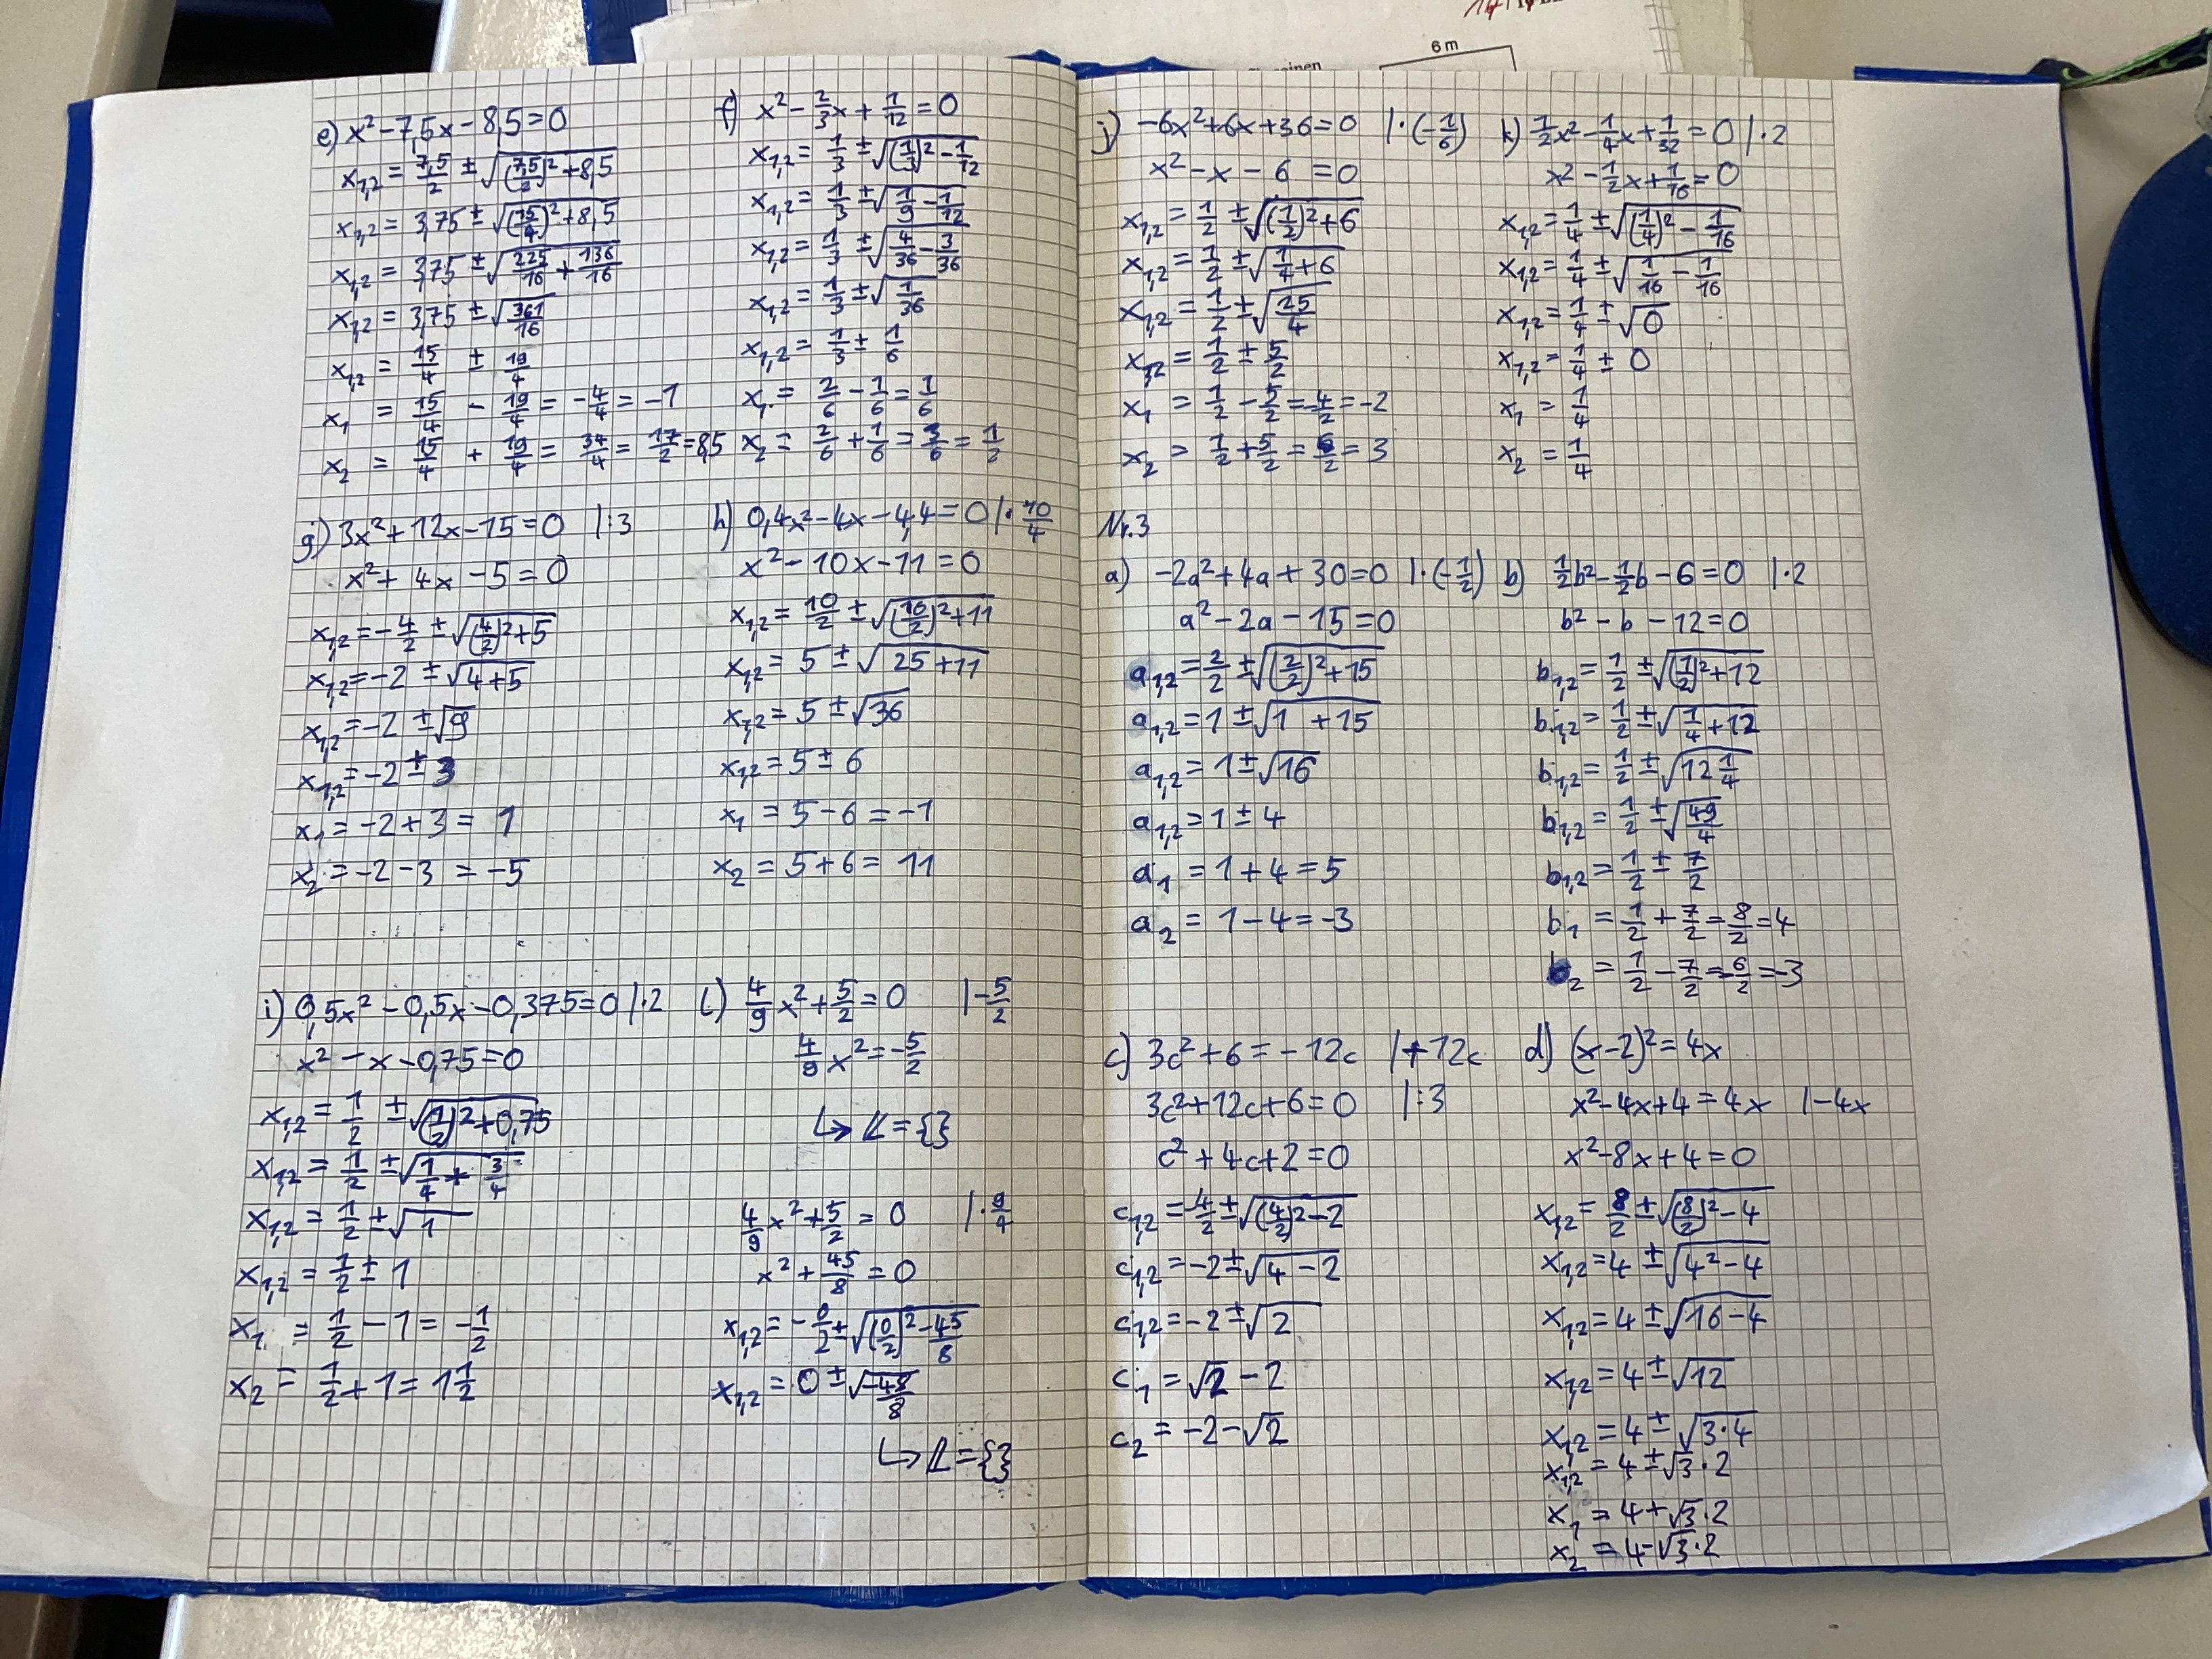 6 m
e) x² - 7,5x - 8,5 = 0
x₁,₂ = 7,5/2 ± √((7,5/2)² + 8,5)
x₁,₂ = 3,75 ± √((15/4)² + 8,5)
x₁,₂ = 3,75 ± √(225/16 + 136/16)
x₁,₂ = 3,75 ± √(361/16)
x₁,₂ = 15/4 ± 19/4
x₁ = 15/4 - 19/4 = -4/4 = -1
x₂ = 15/4 + 19/4 = 34/4 = 17/2 = 8,5
f) x² - 2/3x + 1/12 = 0
x₁,₂ = 1/3 ± √((1/3)² - 1/12)
x₁,₂ = 1/3 ± √(1/9 - 1/12)
x₁,₂ = 1/3 ± √(4/36 - 3/36)
x₁,₂ = 1/3 ± √(1/36)
x₁,₂ = 1/3 ± 1/6
x₁ = 2/6 - 1/6 = 1/6
x₂ = 2/6 + 1/6 = 3/6 = 1/2
g) 3x² + 12x - 15 = 0 |:3
x² + 4x - 5 = 0
x₁,₂ = -4/2 ± √((4/2)² + 5)
x₁,₂ = -2 ± √(4+5)
x₁,₂ = -2 ± √9
x₁,₂ = -2 ± 3
x₁ = -2 + 3 = 1
x₂ = -2 - 3 = -5
h) 0,4x² - 4x - 4,4 = 0 |· 10/4
x² - 10x - 11 = 0
x₁,₂ = 10/2 ± √((10/2)² + 11)
x₁,₂ = 5 ± √(25+11)
x₁,₂ = 5 ± √36
x₁,₂ = 5 ± 6
x₁ = 5 - 6 = -1
x₂ = 5 + 6 = 11
i) 0,5x² - 0,5x - 0,375 = 0 |·2
x² - x - 0,75 = 0
x₁,₂ = 1/2 ± √((1/2)² + 0,75)
x₁,₂ = 1/2 ± √(1/4 + 3/4)
x₁,₂ = 1/2 ± √1
x₁,₂ = 1/2 ± 1
x₁ = 1/2 - 1 = -1/2
x₂ = 1/2 + 1 = 1 1/2
l) 4/9 x² + 5/2 = 0 |-5/2
4/9 x² = -5/2
↳ 𝕃 = {}
4/9 x² + 5/2 = 0 |· 9/4
x² + 45/8 = 0
x₁,₂ = -0/2 ± √((0/2)² - 45/8)
x₁,₂ = 0 ± √(-45/8)
↳ 𝕃 = {}
j) -6x² + 6x + 36 = 0 |·(-1/6)
x² - x - 6 = 0
x₁,₂ = 1/2 ± √((1/2)² + 6)
x₁,₂ = 1/2 ± √(1/4 + 6)
x₁,₂ = 1/2 ± √(25/4)
x₁,₂ = 1/2 ± 5/2
x₁ = 1/2 - 5/2 = -4/2 = -2
x₂ = 1/2 + 5/2 = 6/2 = 3
k) 1/2x² - 1/4x + 1/32 = 0 |·2
x² - 1/2x + 1/16 = 0
x₁,₂ = 1/4 ± √((1/4)² - 1/16)
x₁,₂ = 1/4 ± √(1/16 - 1/16)
x₁,₂ = 1/4 ± √0
x₁,₂ = 1/4 ± 0
x₁ = 1/4
x₂ = 1/4
Nr.3
a) -2a² + 4a + 30 = 0 |·(-1/2)
a² - 2a - 15 = 0
a₁,₂ = 2/2 ± √((2/2)² + 15)
a₁,₂ = 1 ± √(1 + 15)
a₁,₂ = 1 ± √16
a₁,₂ = 1 ± 4
a₁ = 1 + 4 = 5
a₂ = 1 - 4 = -3
b) 1/2b² - 1/2b - 6 = 0 |·2
b² - b - 12 = 0
b₁,₂ = 1/2 ± √((1/2)² + 12)
b₁,₂ = 1/2 ± √(1/4 + 12)
b₁,₂ = 1/2 ± √(12 1/4)
b₁,₂ = 1/2 ± √(49/4)
b₁,₂ = 1/2 ± 7/2
b₁ = 1/2 + 7/2 = 8/2 = 4
b₂ = 1/2 - 7/2 = -6/2 = -3
c) 3c² + 6 = -12c |+12c
3c² + 12c + 6 = 0 |:3
c² + 4c + 2 = 0
c₁,₂ = -4/2 ± √((4/2)² - 2)
c₁,₂ = -2 ± √(4 - 2)
c₁,₂ = -2 ± √2
c₁ = √2 - 2
c₂ = -2 - √2
d) (x-2)² = 4x
x² - 4x + 4 = 4x |-4x
x² - 8x + 4 = 0
x₁,₂ = 8/2 ± √((8/2)² - 4)
x₁,₂ = 4 ± √(4² - 4)
x₁,₂ = 4 ± √(16 - 4)
x₁,₂ = 4 ± √12
x₁,₂ = 4 ± √(3·4)
x₁,₂ = 4 ± √3·2
x₁ = 4 + √3·2
x₂ = 4 - √3·2